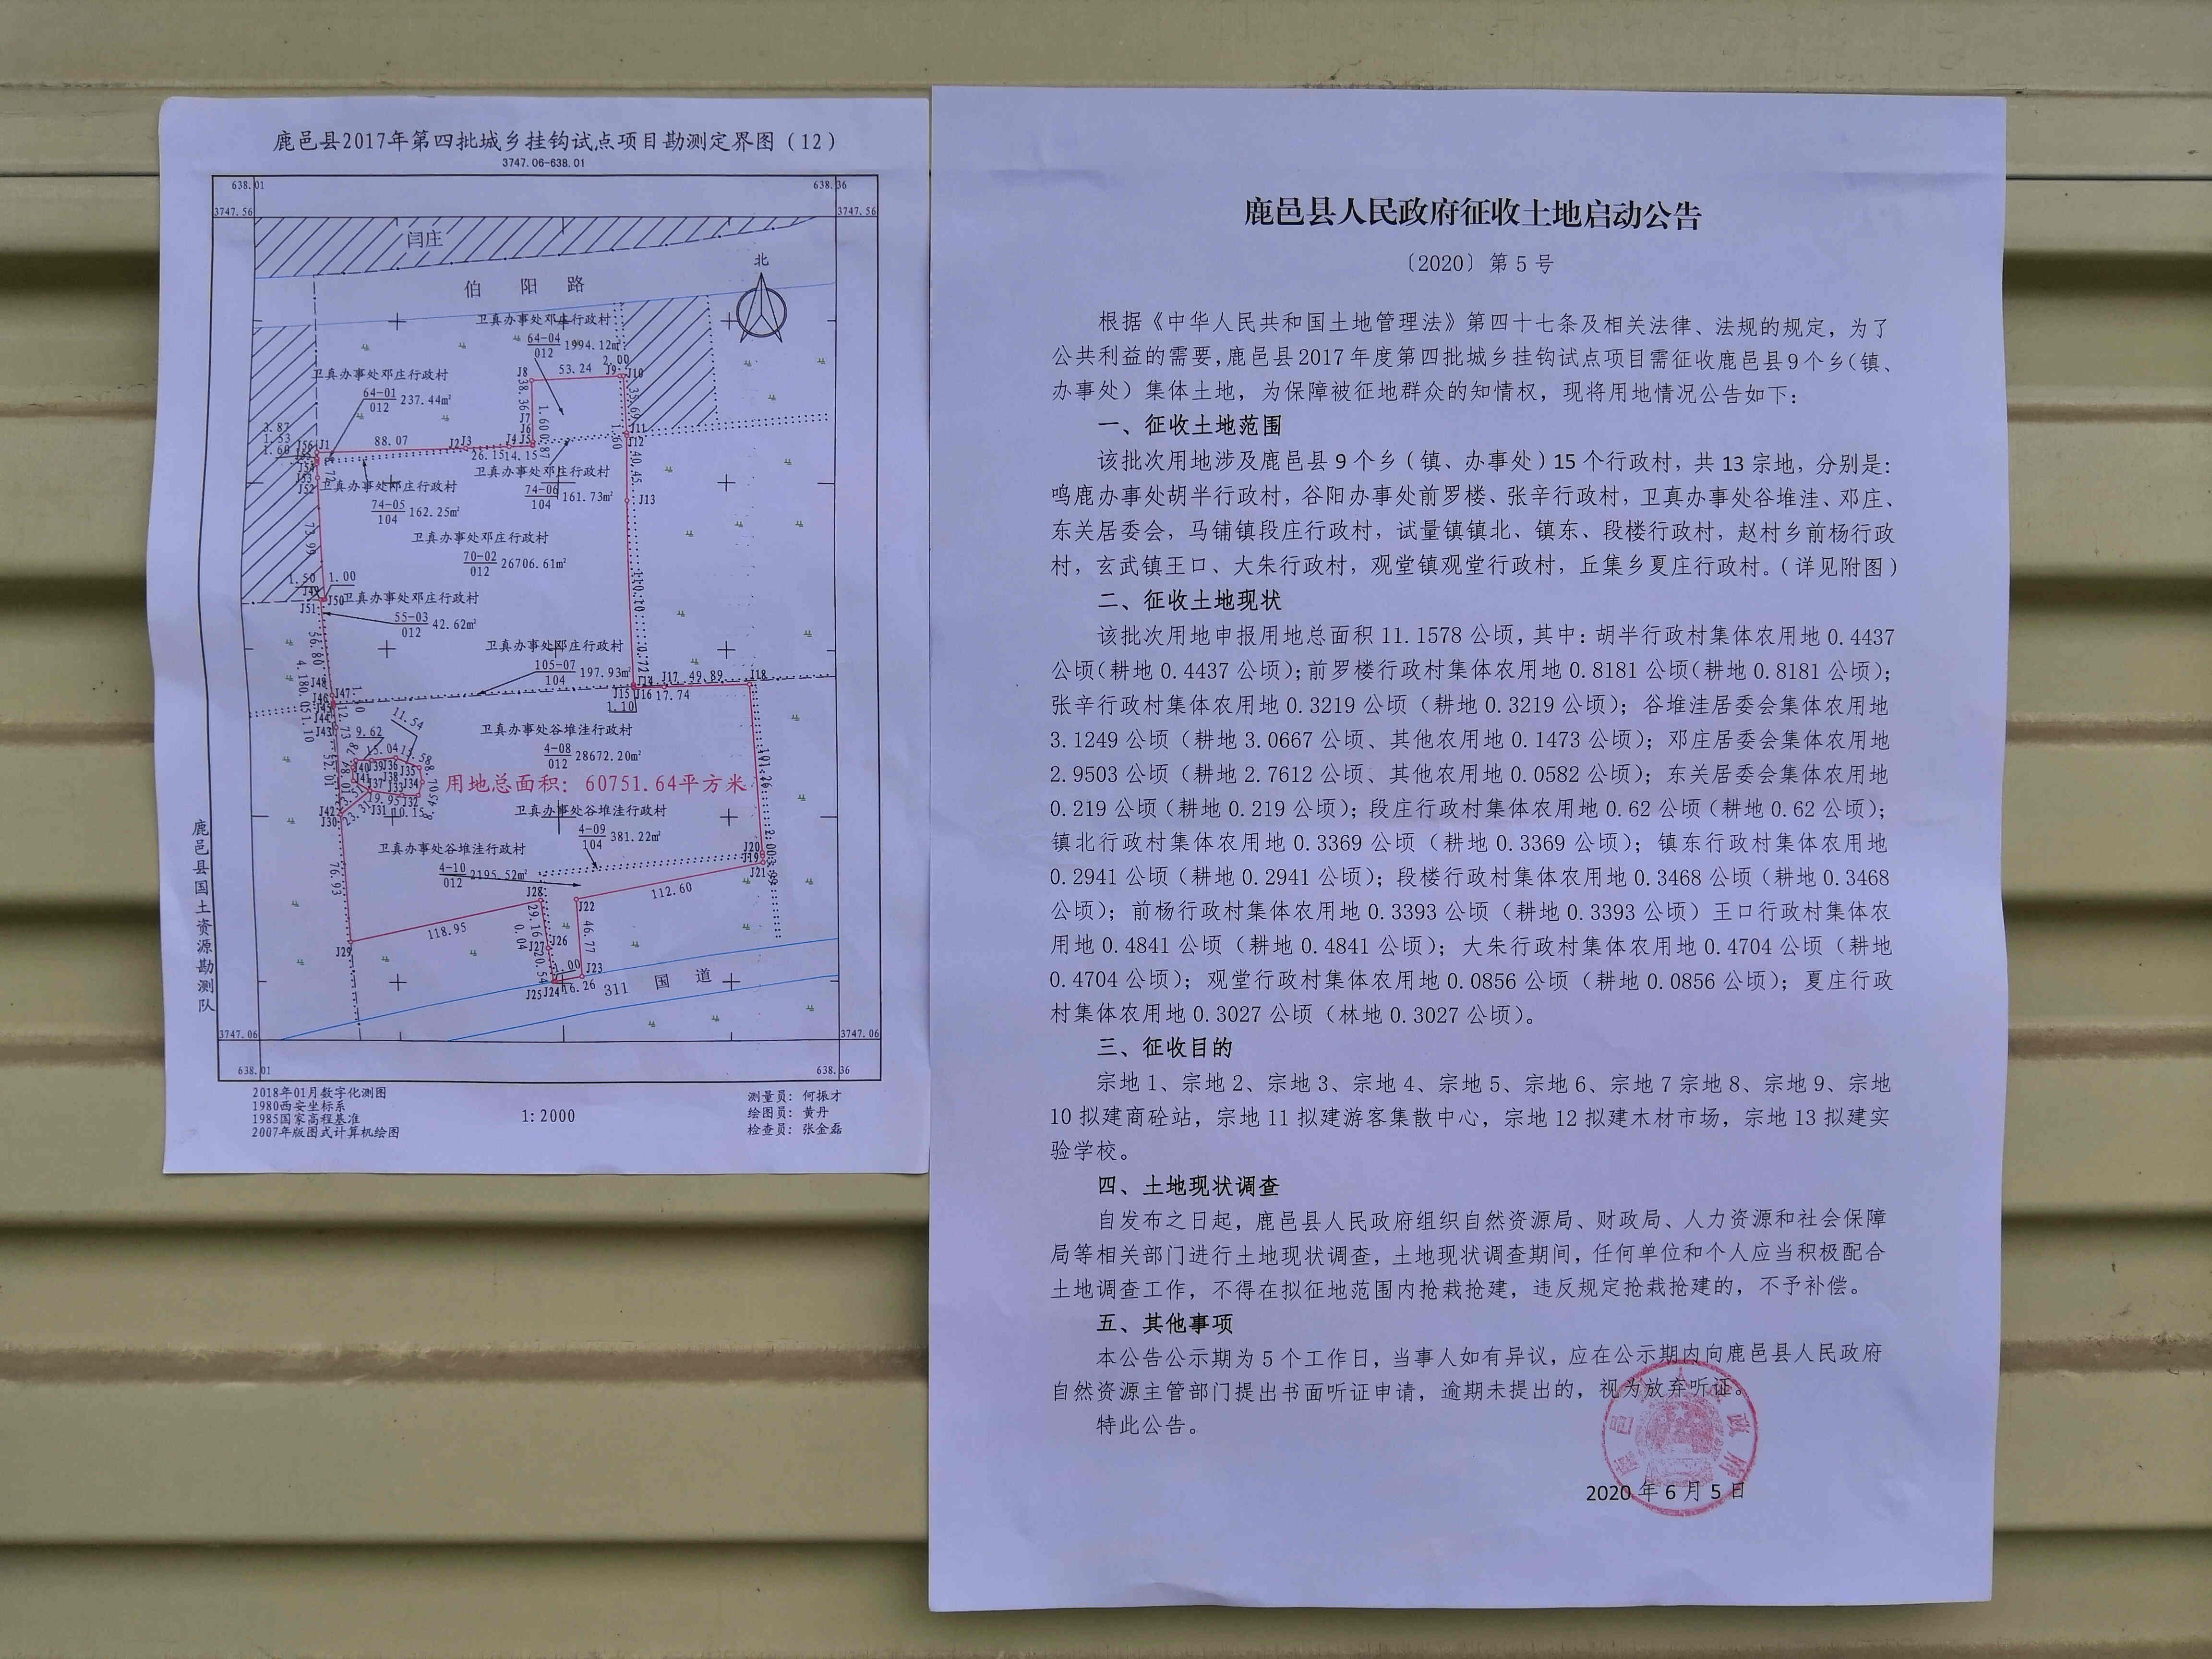 鹿邑县2017年第四批城乡挂钩试点项目勘测定界图（12）
3747.06-638.01
638.01
638.36
3747.56
3747.56
闫庄
北
伯阳路
卫真办事处邓庄行政村
64-04
012
1994.12㎡
2.00
J8
53.24
J9
J10
卫真办事处邓庄行政村
64-01
012
237.44㎡
38.36
35.69
J7
J6
1.60
J11
3.87
1.53
1.60
J56
J1
88.07
J2
J3
J4
J5
J12
26.15
14.15
卫真办事处邓庄行政村
74-06
104
161.73㎡
40.45
J13
J53
J52
卫真办事处邓庄行政村
74-05
104
162.25㎡
73.99
卫真办事处邓庄行政村
70-02
012
26706.61㎡
1.50
1.00
J49
J50
J51
卫真办事处邓庄行政村
55-03
012
42.62㎡
56.80
卫真办事处邓庄行政村
105-07
104
197.93㎡
J14
J17
49.89
J18
J15
J16
17.74
1.10
J48
J47
J46
J44
J43
11.54
9.62
15.04
卫真办事处谷堆洼行政村
4-08
012
28672.20㎡
101.26
J40
J39
J36
J35
J41
J37
J38
J33
J34
用地总面积：60751.64平方米
19.95
J32
J42
J30
J31
10.15
卫真办事处谷堆洼行政村
4-09
104
381.22㎡
J20
J19
J21
卫真办事处谷堆洼行政村
4-10
012
2195.52㎡
76.93
J28
112.60
J22
118.95
29.16
0.04
46.77
J29
J27
J26
20.54
1.00
J23
J25
J24
16.26
311 国道
鹿邑县国土资源勘测队
3747.06
3747.06
638.01
638.36
2018年01月数字化测图
1980西安坐标系
1985国家高程基准
2007年版图式计算机绘图
1:2000
测量员：何振才
绘图员：黄丹
检查员：张金磊
鹿邑县人民政府征收土地启动公告
〔2020〕第5号
根据《中华人民共和国土地管理法》第四十七条及相关法律、法规的规定，为了
公共利益的需要，鹿邑县2017年度第四批城乡挂钩试点项目需征收鹿邑县9个乡（镇、
办事处）集体土地，为保障被征地群众的知情权，现将用地情况公告如下：
一、征收土地范围
该批次用地涉及鹿邑县9个乡（镇、办事处）15个行政村，共13宗地，分别是：
鸣鹿办事处胡半行政村，谷阳办事处前罗楼、张辛行政村，卫真办事处谷堆洼、邓庄、
东关居委会，马铺镇段庄行政村，试量镇镇北、镇东、段楼行政村，赵村乡前杨行政
村，玄武镇王口、大朱行政村，观堂镇观堂行政村，丘集乡夏庄行政村。（详见附图）
二、征收土地现状
该批次用地申报用地总面积11.1578公顷，其中：胡半行政村集体农用地0.4437
公顷（耕地0.4437公顷）；前罗楼行政村集体农用地0.8181公顷（耕地0.8181公顷）；
张辛行政村集体农用地0.3219公顷（耕地0.3219公顷）；谷堆洼居委会集体农用地
3.1249公顷（耕地3.0667公顷、其他农用地0.1473公顷）；邓庄居委会集体农用地
2.9503公顷（耕地2.7612公顷、其他农用地0.0582公顷）；东关居委会集体农用地
0.219公顷（耕地0.219公顷）；段庄行政村集体农用地0.62公顷（耕地0.62公顷）；
镇北行政村集体农用地0.3369公顷（耕地0.3369公顷）；镇东行政村集体农用地
0.2941公顷（耕地0.2941公顷）；段楼行政村集体农用地0.3468公顷（耕地0.3468
公顷）；前杨行政村集体农用地0.3393公顷（耕地0.3393公顷）王口行政村集体农
用地0.4841公顷（耕地0.4841公顷）；大朱行政村集体农用地0.4704公顷（耕地
0.4704公顷）；观堂行政村集体农用地0.0856公顷（耕地0.0856公顷）；夏庄行政
村集体农用地0.3027公顷（林地0.3027公顷）。
三、征收目的
宗地1、宗地2、宗地3、宗地4、宗地5、宗地6、宗地7宗地8、宗地9、宗地
10拟建商砼站，宗地11拟建游客集散中心，宗地12拟建木材市场，宗地13拟建实
验学校。
四、土地现状调查
自发布之日起，鹿邑县人民政府组织自然资源局、财政局、人力资源和社会保障
局等相关部门进行土地现状调查，土地现状调查期间，任何单位和个人应当积极配合
土地调查工作，不得在拟征地范围内抢栽抢建，违反规定抢栽抢建的，不予补偿。
五、其他事项
本公告公示期为5个工作日，当事人如有异议，应在公示期内向鹿邑县人民政府
自然资源主管部门提出书面听证申请，逾期未提出的，视为放弃听证。
特此公告。
2020年6月5日